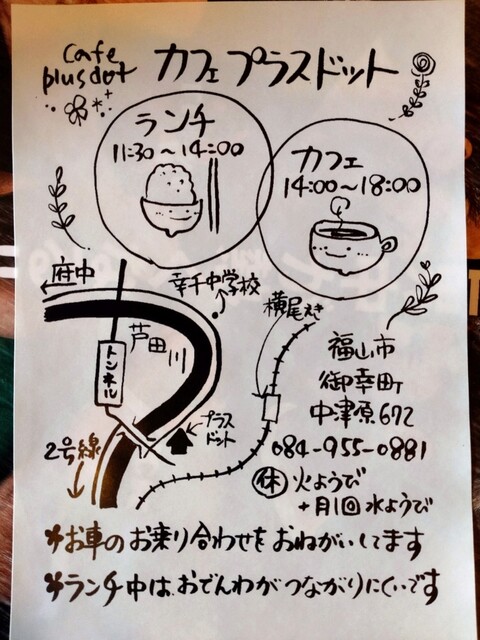 cafe
plusdot
カフェ プラスドット
ランチ
11:30〜14:00
カフェ
14:00〜18:00
府中
幸千中学校
横尾えき
芦田
川
トンネル
プラス
ドット
2号線
福山市
御幸町
中津原672
084-955-0881
休 火ようび
+月1回 水ようび
*お車のお乗り合わせをおねがいしてます
*ランチ中は、おでんわがつながりにくいです